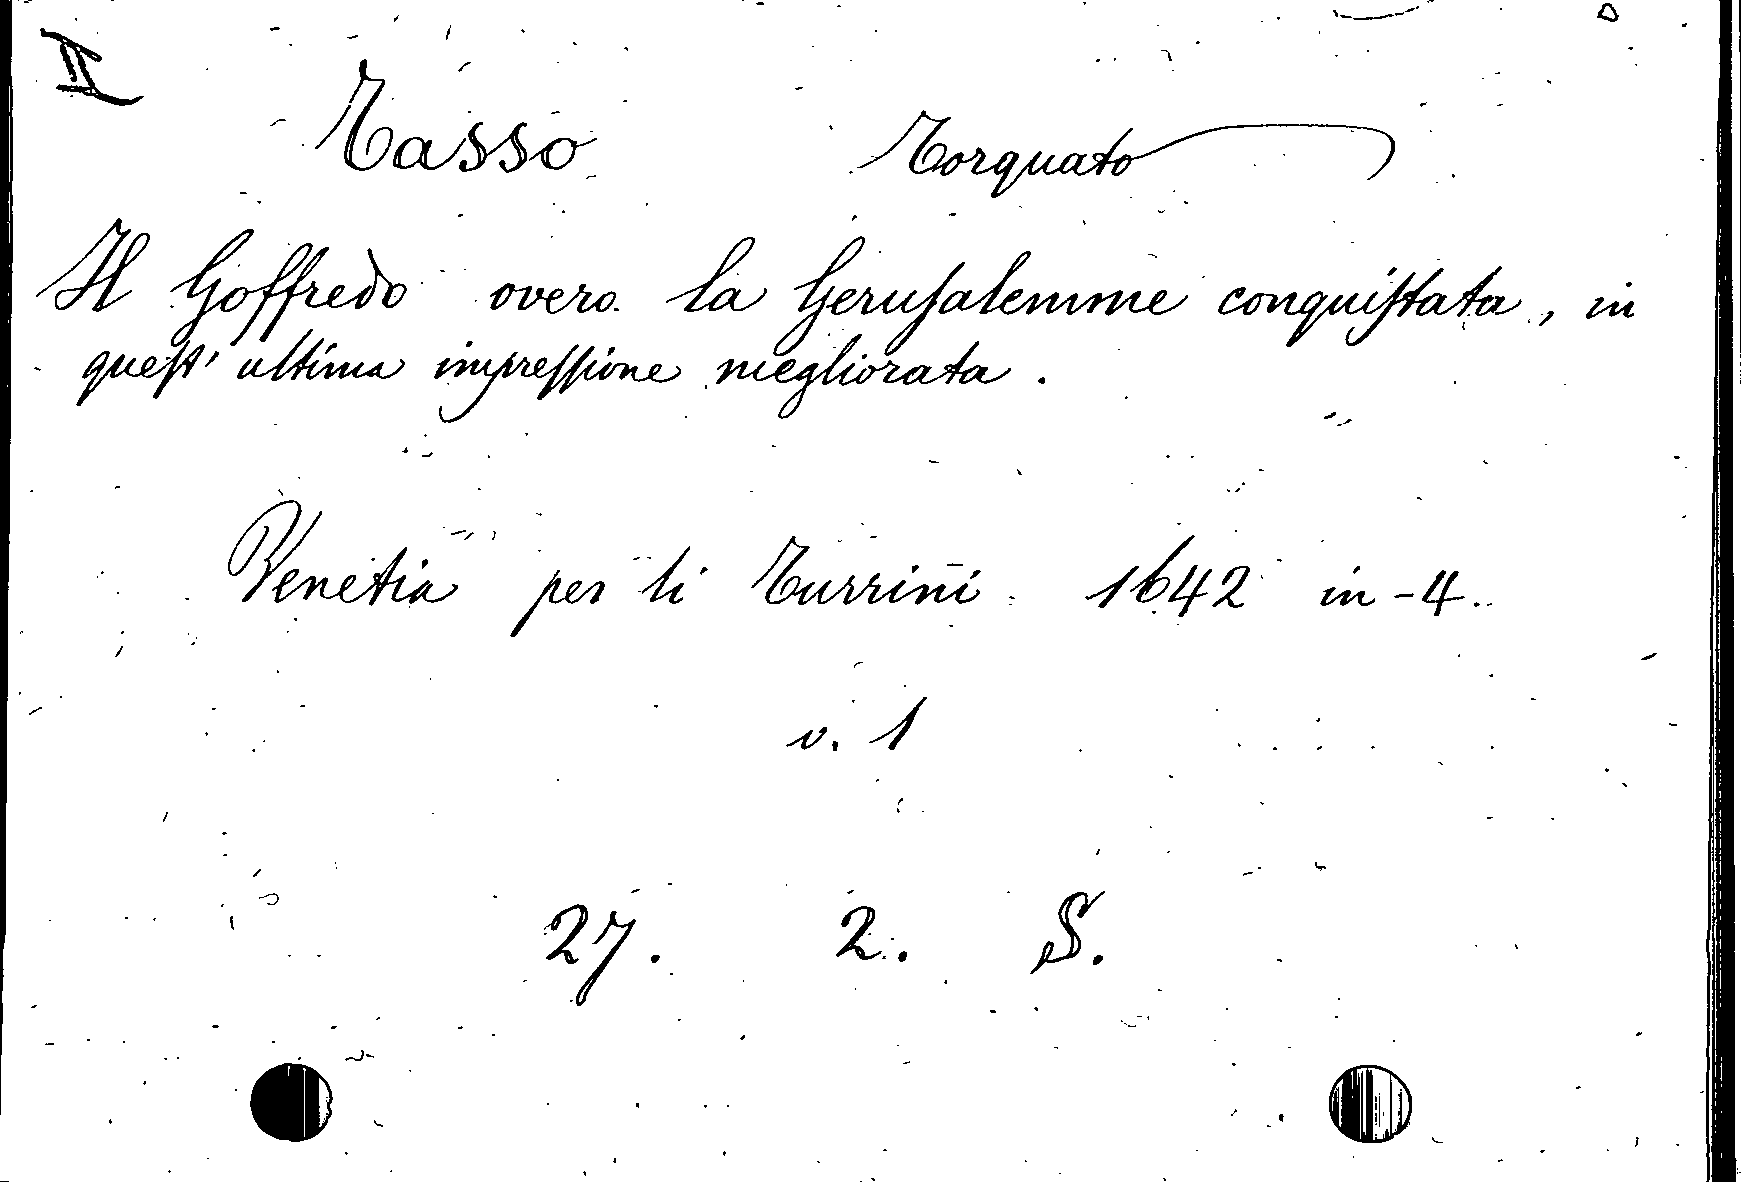 II
Tasso Torquato
Il Goffredo overo la Geruſalemme conquiſtata, in
queſt' ultima impreſſione megliorata.
Venetia per li Turrini 1642 in-4.
v. 1
27. 2. S.